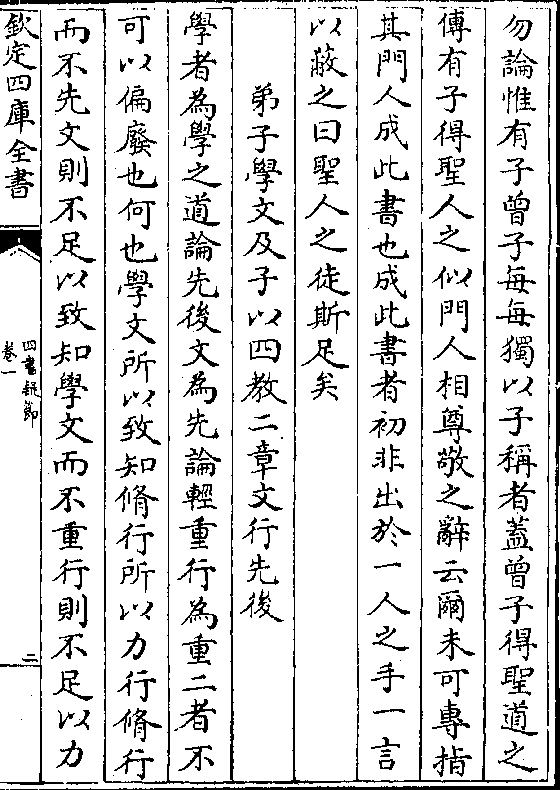 勿論惟有子曾子每每獨以子稱者蓋曾子得聖道之
傳有子得聖人之似門人相尊敬之辭云爾未可專指
其門人成此書也成此書者初非出於一人之手一言
以蔽之曰聖人之徒斯足矣
弟子學文及子以四教二章文行先後
學者為學之道論先後文為先論輕重行為重二者不
可以偏廢也何也學文所以致知脩行所以力行脩行
而不先文則不足以致知學文而不重行則不足以力
欽定四庫全書
四書疑節
卷一
二